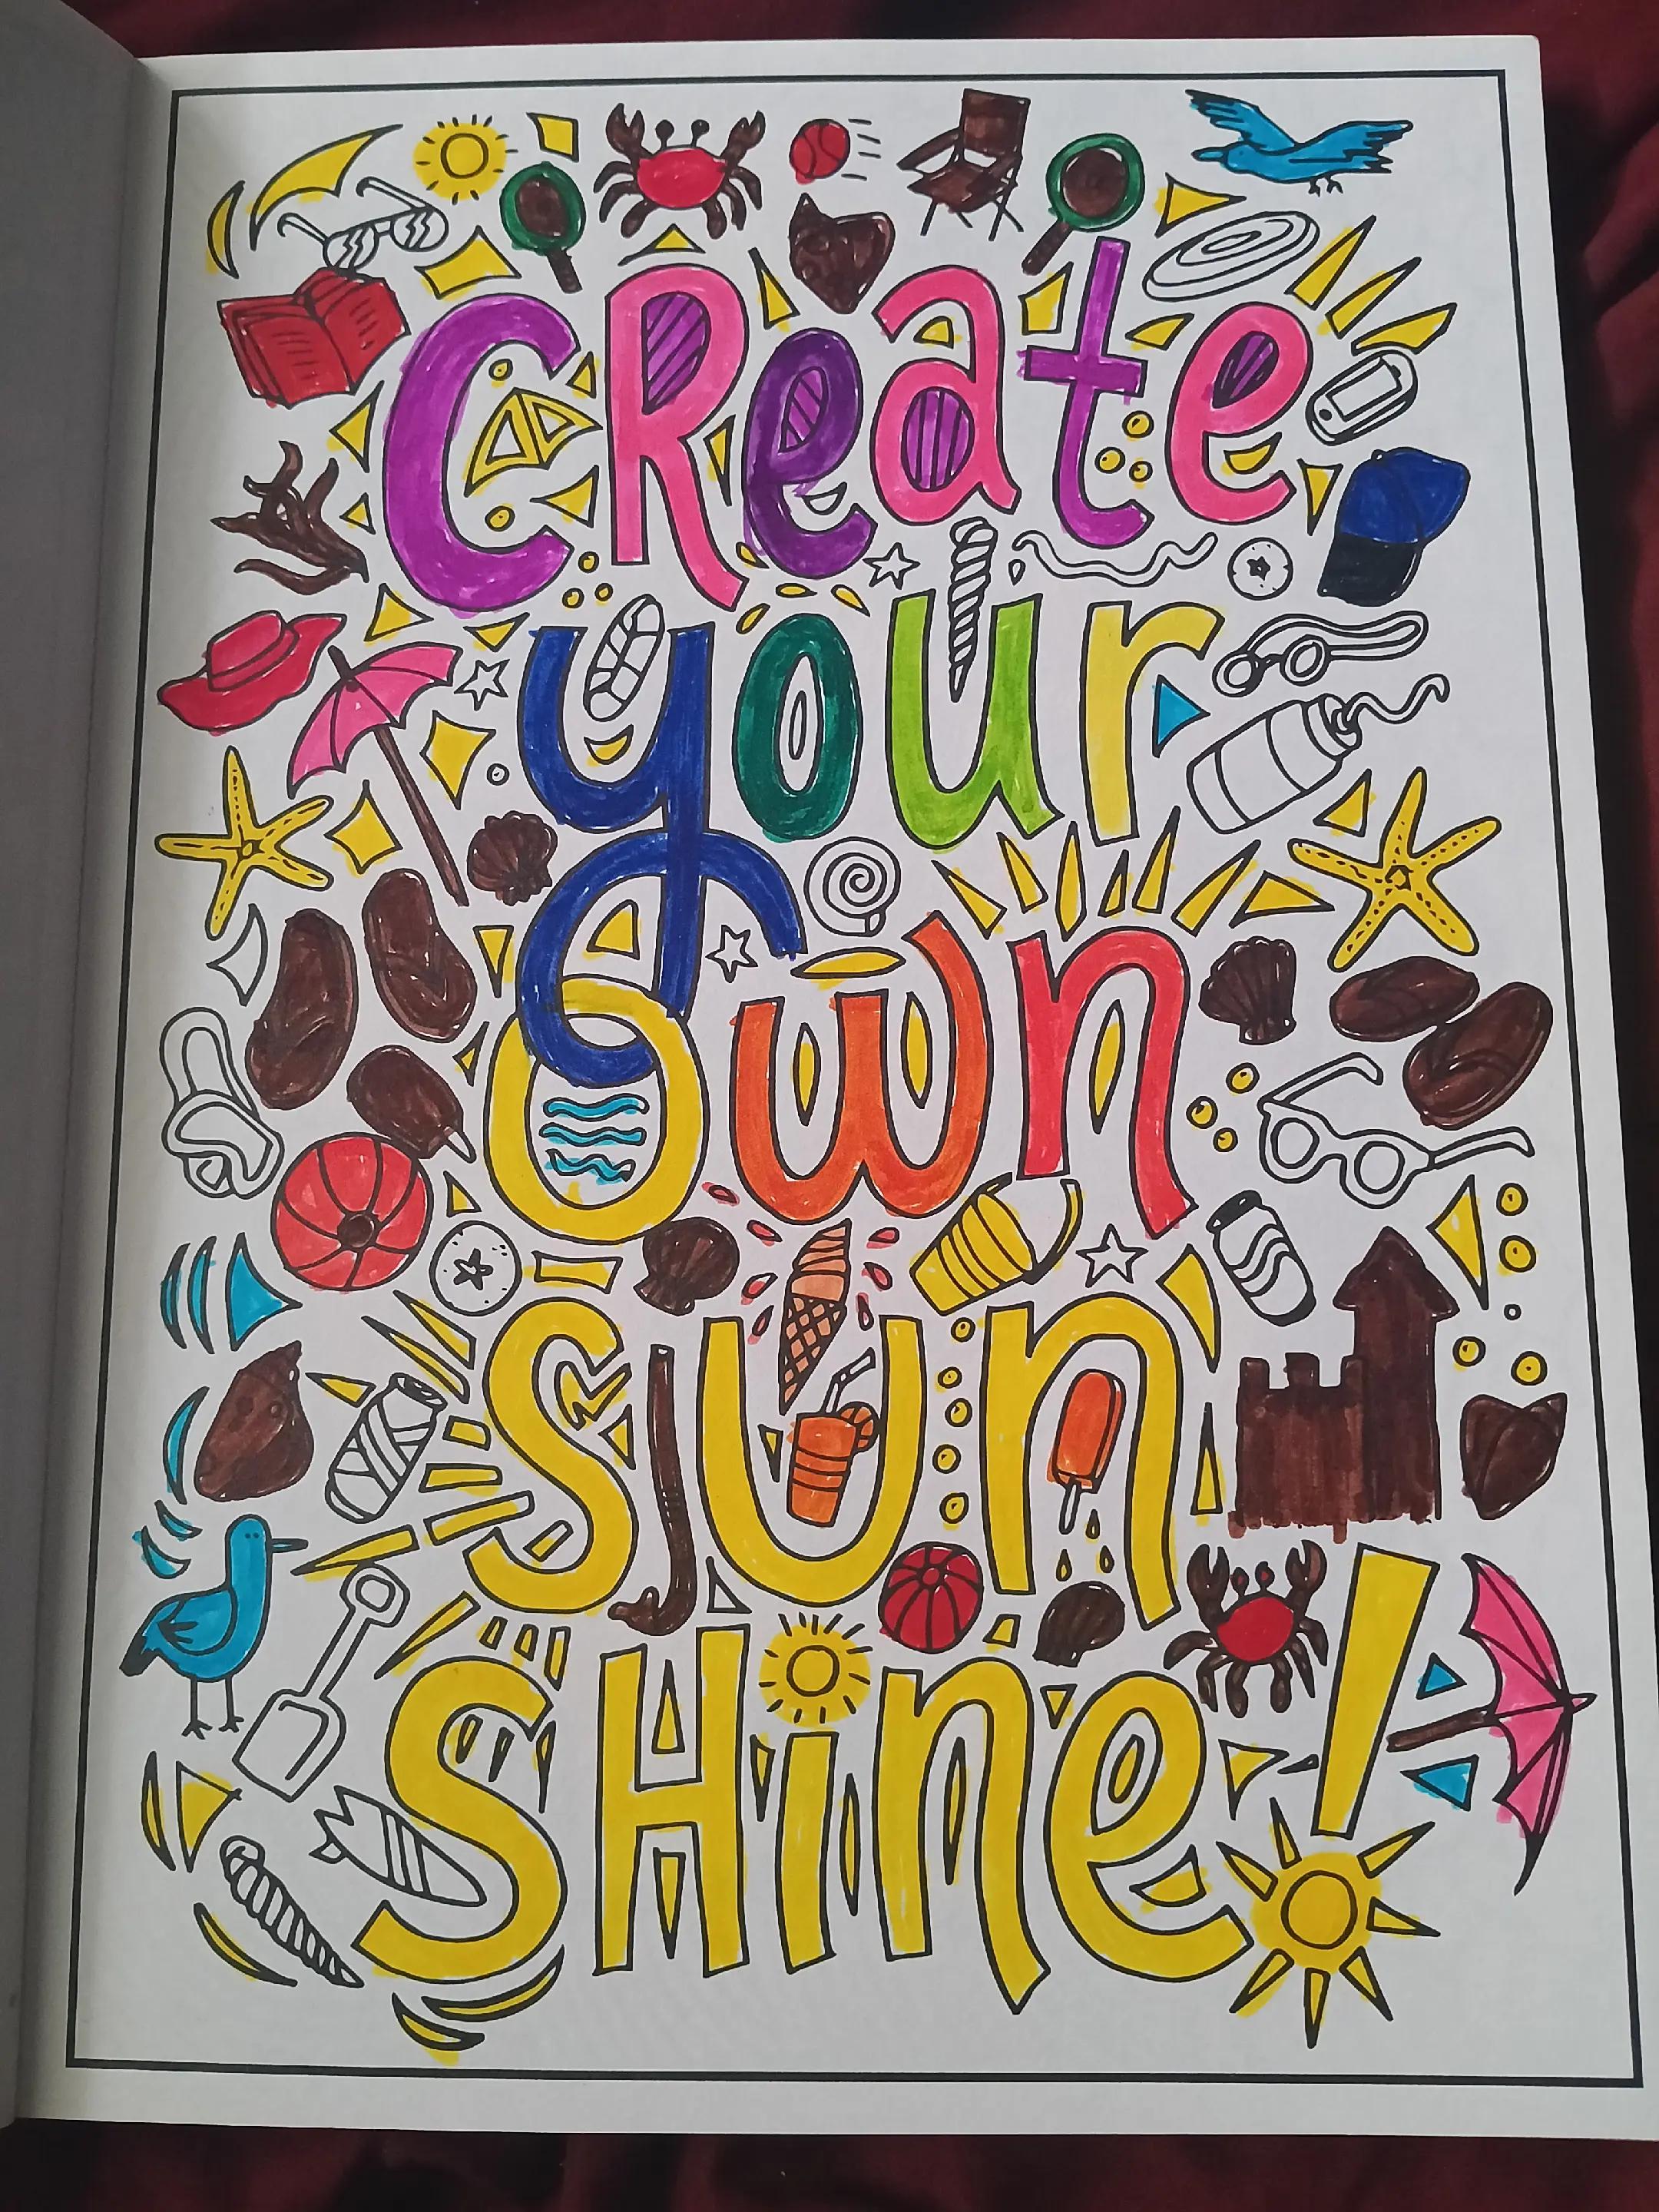 CReate
your
own
sun
sHine!